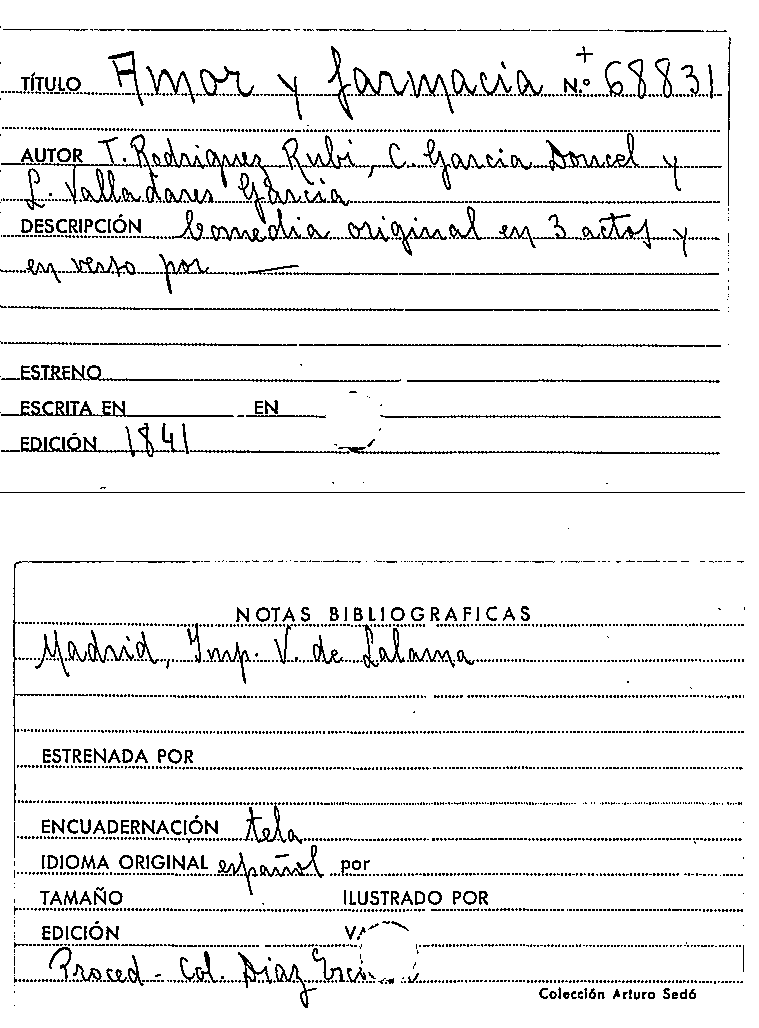 TÍTULO Amor y farmacia N.º 68831
AUTOR T. Rodriguez Rubi, C. Garcia Doncel y
L. Valladares Garcia
DESCRIPCIÓN Comedia original en 3 actos y
en verso por —
ESTRENO
ESCRITA EN EN
EDICIÓN 1841
NOTAS BIBLIOGRAFICAS
Madrid, Imp. V. de Lalama
ESTRENADA POR
ENCUADERNACIÓN tela
IDIOMA ORIGINAL español por
TAMAÑO ILUSTRADO POR
EDICIÓN
Proced - Col. Diaz
Colección Arturo Sedó